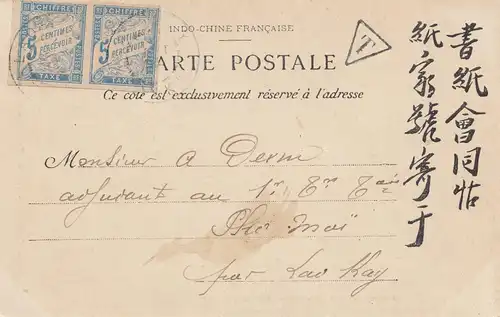 INDO-CHINE FRANÇAISE
CARTE POSTALE
Ce côté est exclusivement réservé à l'adresse
CHIFFRE
5
CENTIMES
À
PERCEVOIR
TAXE
POSTES
CHIFFRE
5
CENTIMES
À
PERCEVOIR
TAXE
T
Monsieur A Derm
adjudant au 1er
Pho Moï
par Lao Kay
書紙會同帖
紙家號寄于